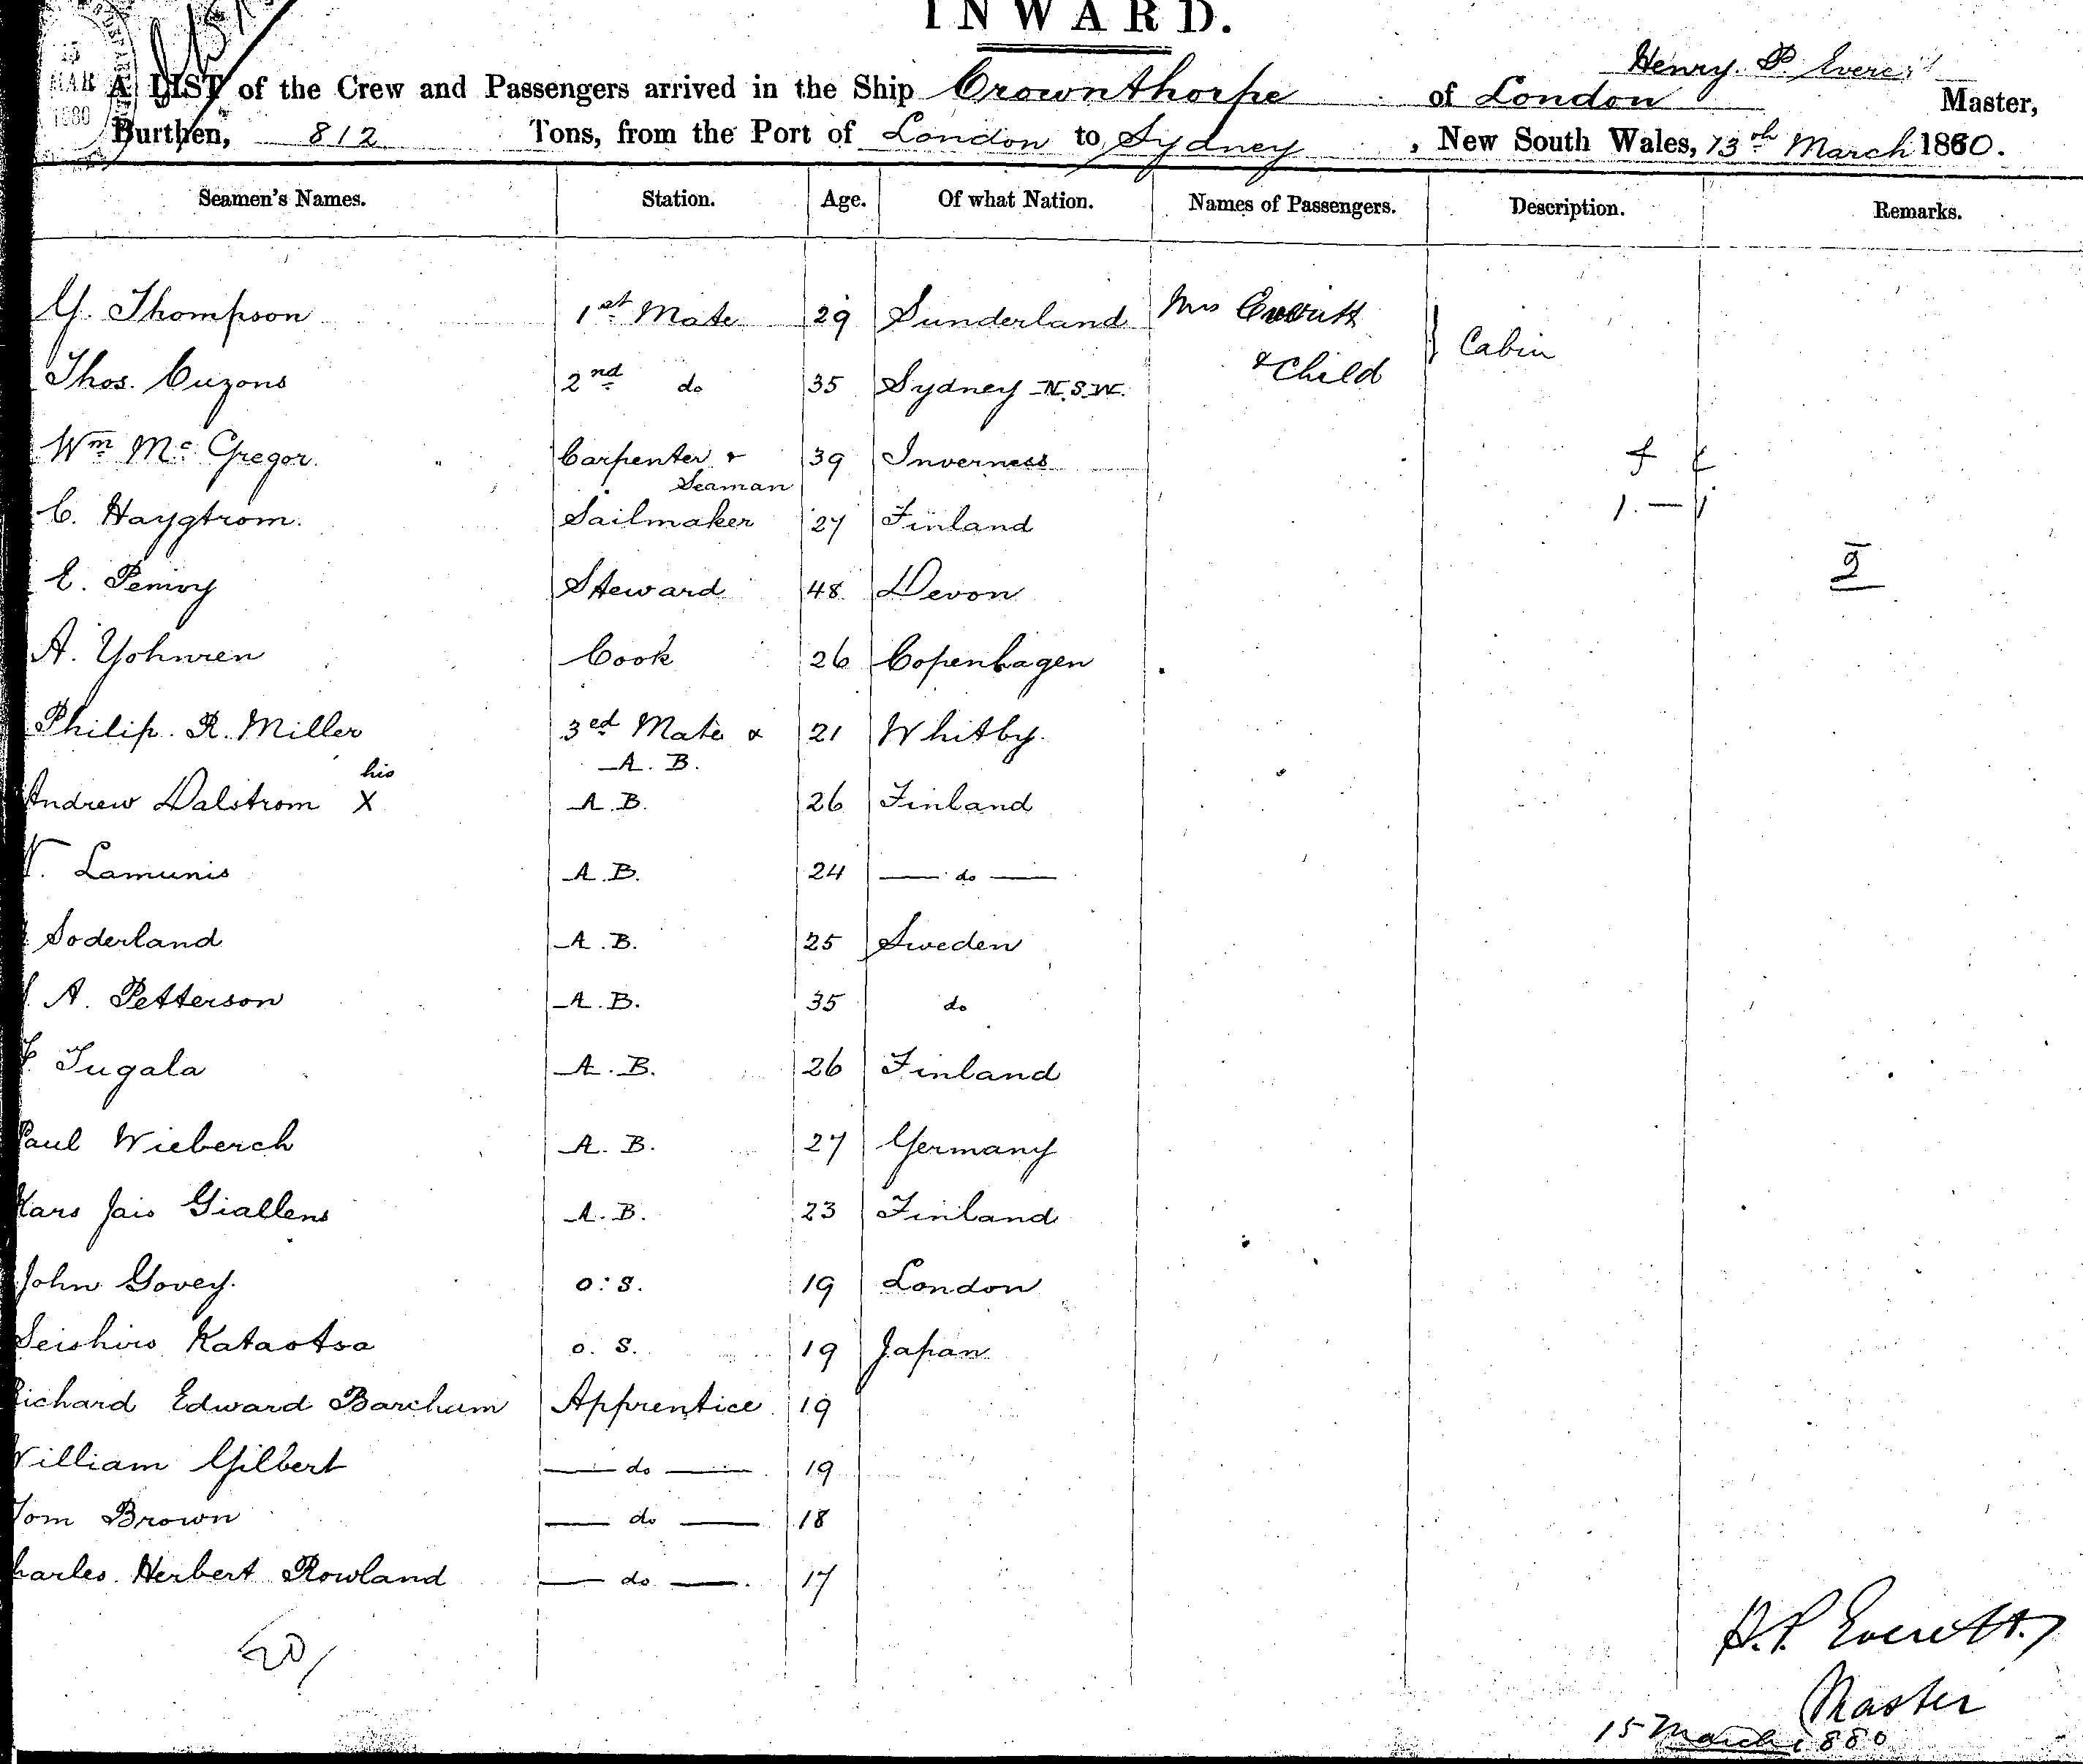 INWARD.
Henry. P.
A LIST of the Crew and Passengers arrived in the Ship Crownthorpe of London Master,
Burthen, 812 Tons, from the Port of London to Sydney, New South Wales, 13th March 1880.
Seamen's Names. Station. Age. Of what Nation. Names of Passengers. Description. Remarks.
G. Thompson 1st Mate 29 Sunderland Mrs Everitt
& Child } Cabin
Thos. Cuzons 2nd do 35 Sydney N.S.W.
Wm McGregor. Carpenter + 39 Inverness f f
Seaman 1. — 1
C. Haygtrom. Sailmaker 27 Finland
E. Steward 48 Devon 2
A. Yohnren Cook 26 Copenhagen
Philip. R. Miller 3ed Mate & 21 Whitby.
A. B.
his
Andrew Dalstrom X A.B. 26 Finland
Lamunis A.B. 24 — do —
Soderland A.B. 25 Sweden
A. Petterson A.B. 35 do
F. Tugala A.B. 26 Finland
Paul Wieberch A.B. 27 Germany
Giallens A.B. 23 Finland
John Govey. O.S. 19 London
Seishiro Kataotsa O.S. 19 Japan
Richard Edward Barcham Apprentice 19
William Gilbert — do — 19
Tom Brown — do — 18
Charles Herbert Rowland — do — 17
20/
H.P. Everett.
Master
15 March 1880
15
MAR
1880